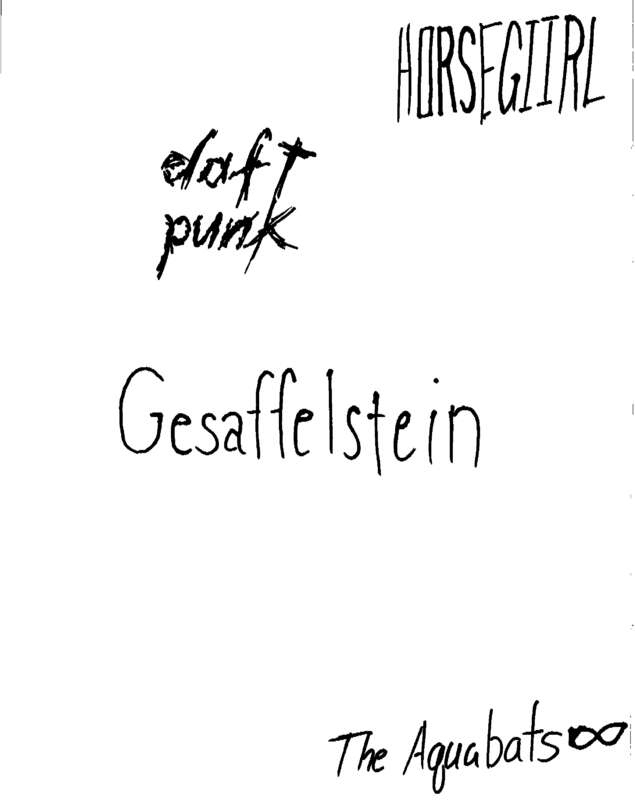 HORSEGIIRL
daft
punk
Gesaffelstein
The Aquabats ∞